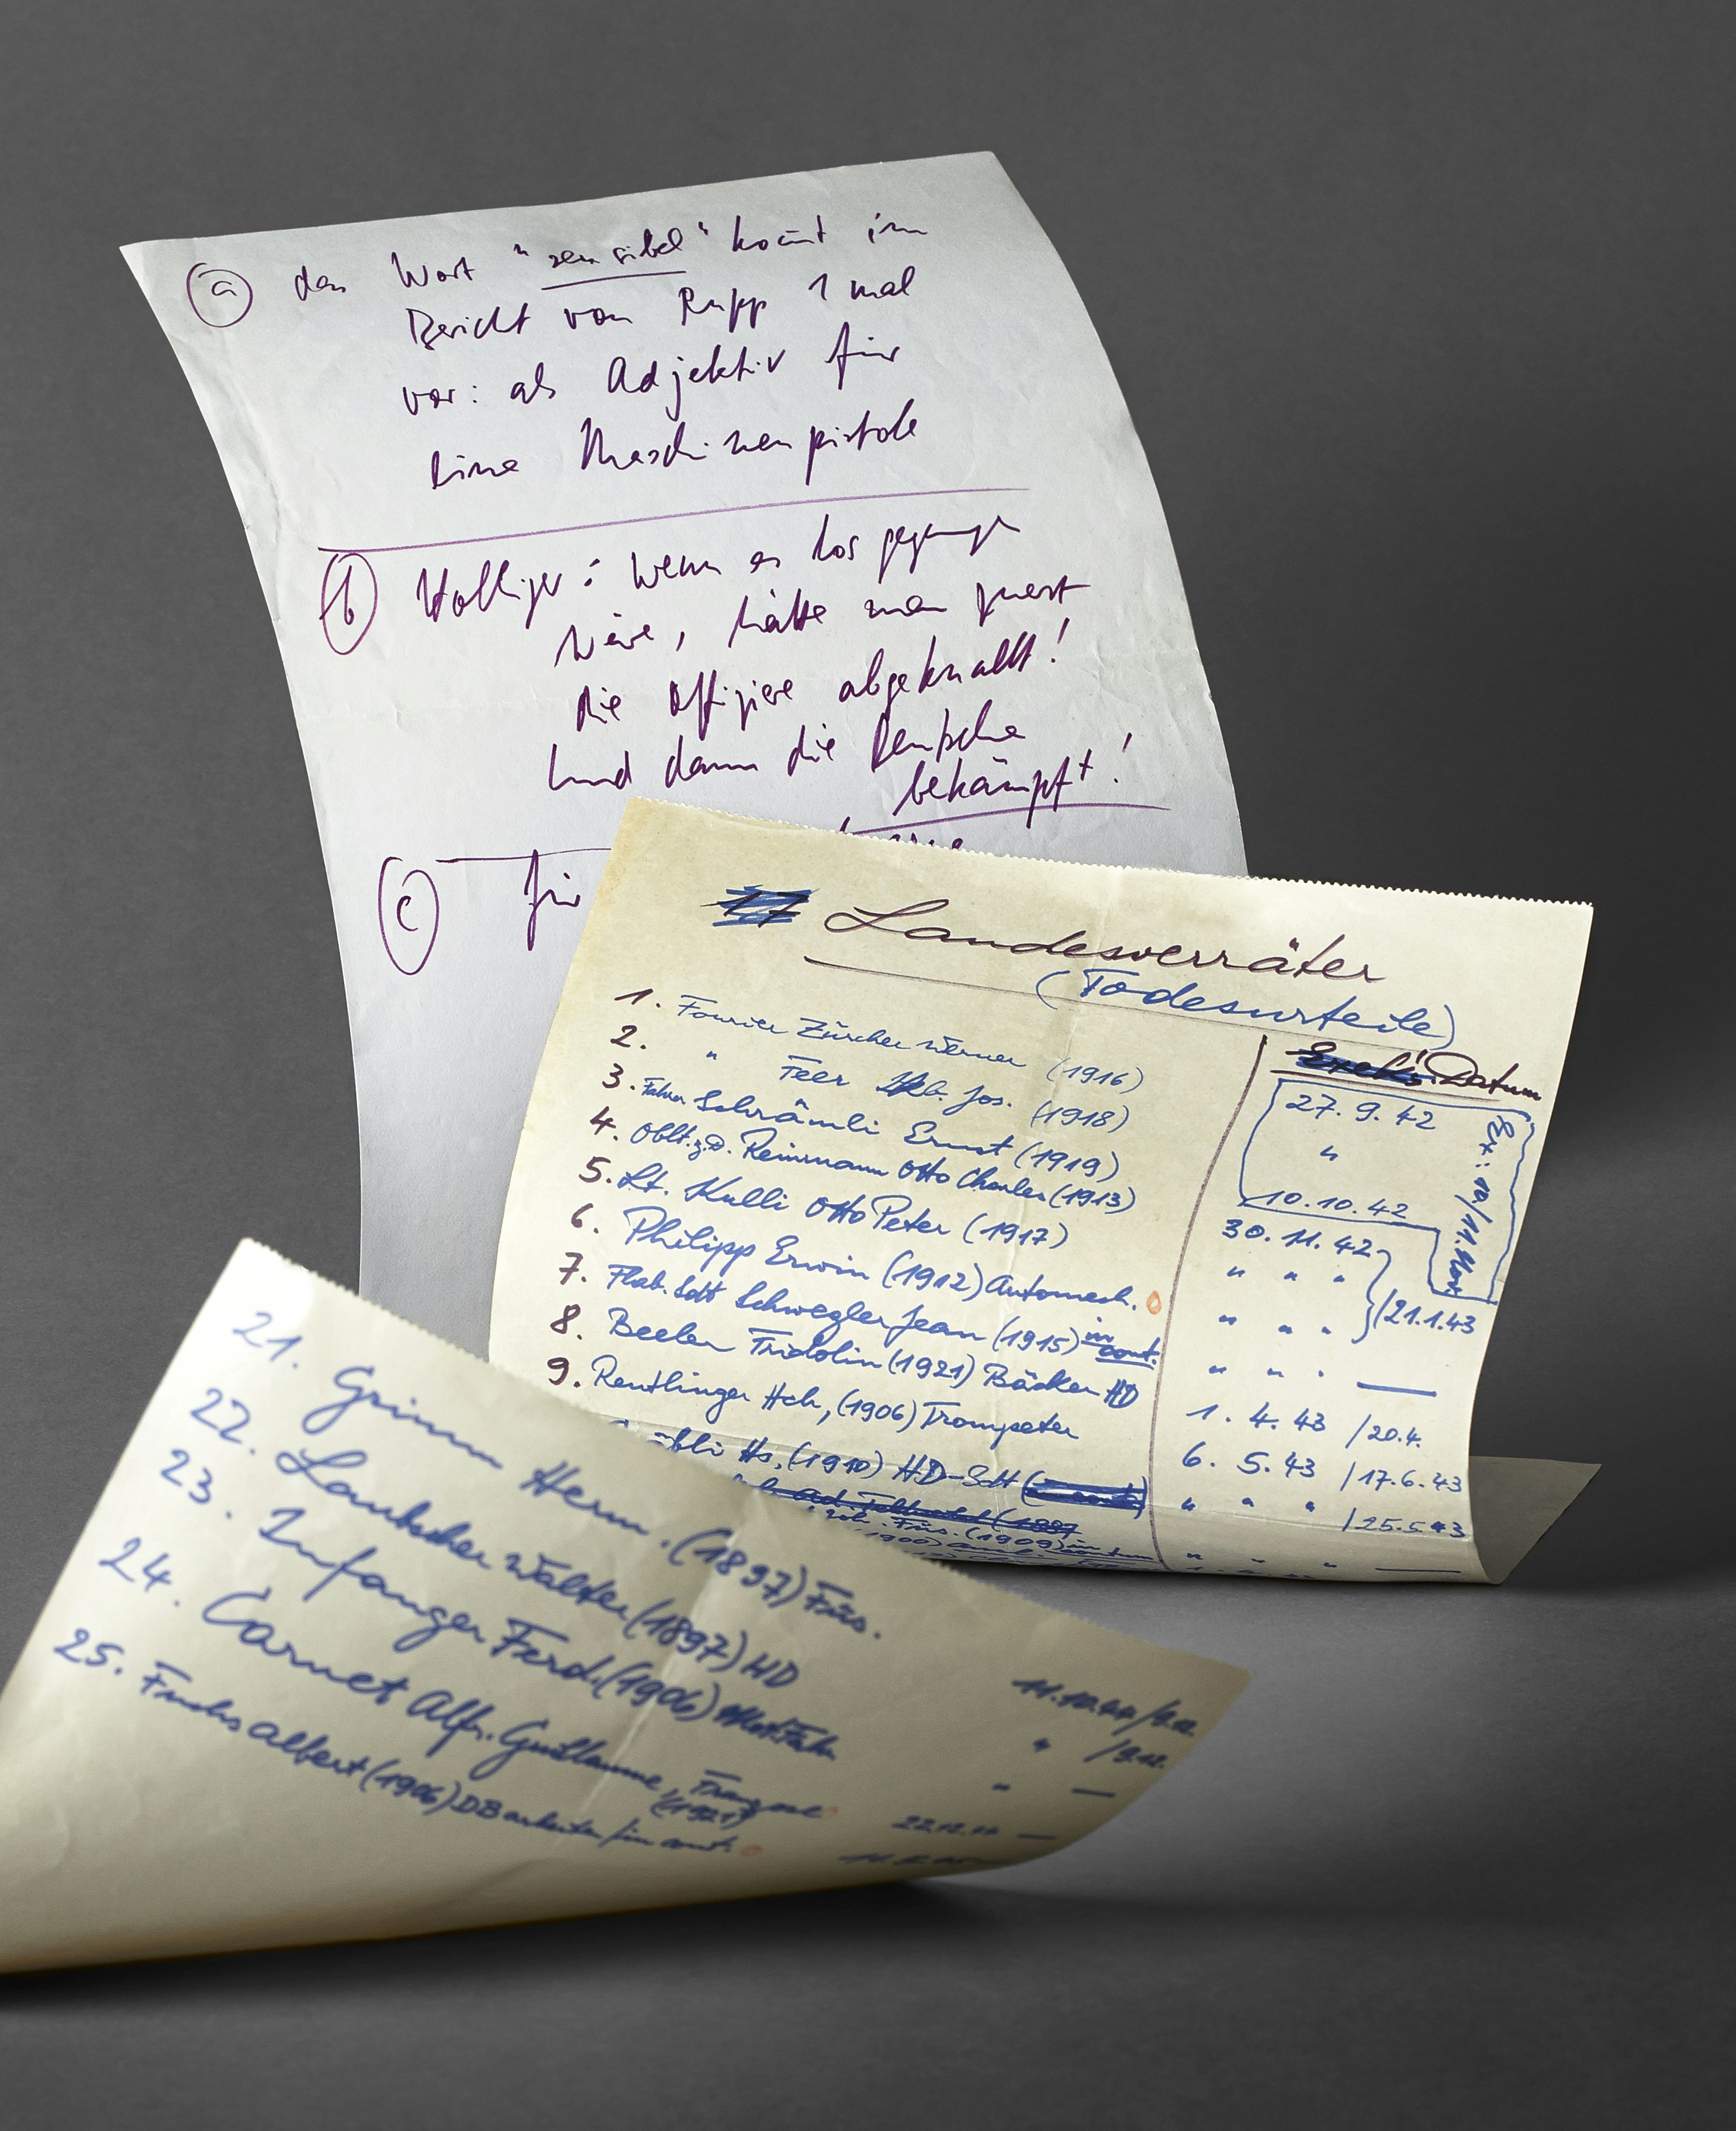 a das Wort "sensibel" kommt im
Bericht von Rupp 1 mal
vor: als Adjektiv für
eine Maschinenpistole
b Holliger: Wenn es los gegangen
wäre, hätte man zuerst
die Offiziere abgeknallt!
Und dann die Deutschen
bekämpft!
c für
17 Landesverräter
(Todesurteile)
Datum
1. Fourier Zürcher Werner (1916) 27. 9. 42
2. " Feer Jos. (1918) "
3. Fahrer Schrämli Ernst (1919) 10. 10. 42
Ex.: 10/11. Nov.
4. Oblt. z.D. Reimann Otto Charles (1913) 30. 11. 42
5. Lt. Kulli Otto Peter (1917) " " "
6. Philipp Erwin (1912) Automech. " " "
/21.1.43
7. Flab. Sdt Schwegler Jean (1915) in cont. " " " —
8. Beeler Fridolin (1921) Bäcker HD 1. 4. 43 /20.4.
9. Reutlinger Hch, (1906) Trompeter 6. 5. 43 /17.6.43
Hs, (1910) HD-Sdt " " " /25.5.43
Füs. (1909) " " " —
(1900)
21. Grimm Herm. (1897) Füs.
22. Laubscher Walter (1897) HD
23. Infanger Ferd. (1906) Mot. Fahr.
24. Cornet Alfr. Guillaume, Franzose (1921)
25. Fuchs Albert (1906) DB arbeiter/in cont.
11.10.44/
" /9.12.
" —
22.12.44 —